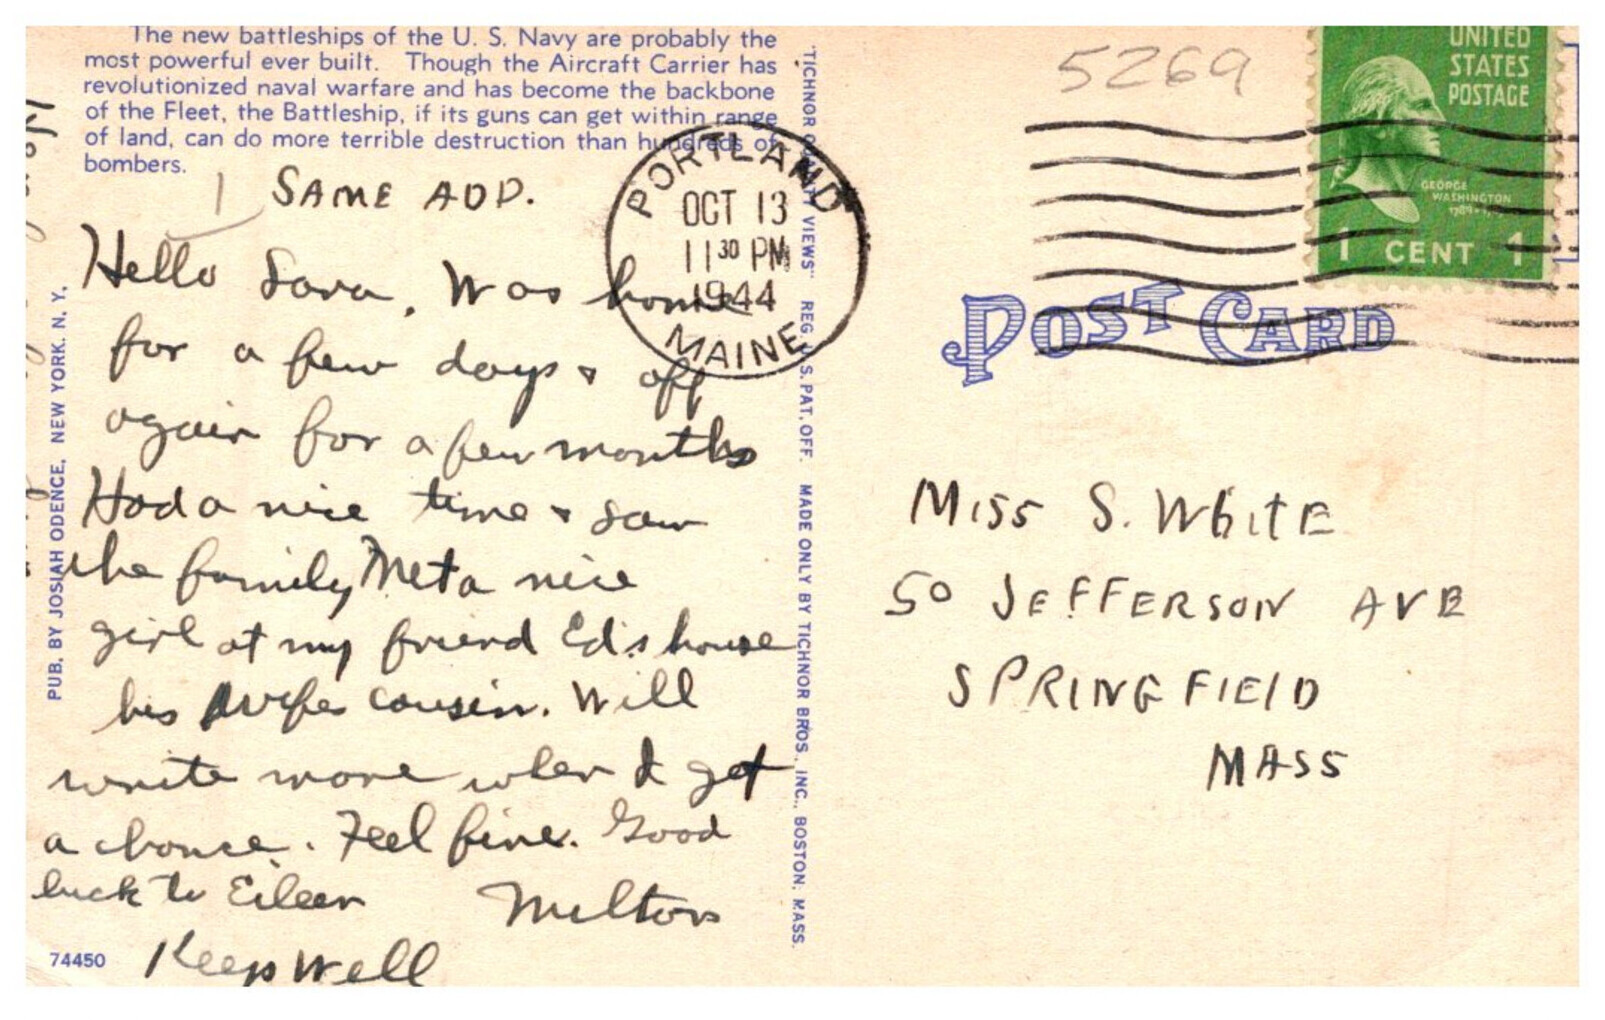 The new battleships of the U. S. Navy are probably the
most powerful ever built. Though the Aircraft Carrier has
revolutionized naval warfare and has become the backbone
of the Fleet, the Battleship, if its guns can get within range
of land, can do more terrible destruction than hundreds of
bombers.
SAME ADD.
Hello Sara, Was home
for a few days & off
again for a few months
Had a nice time & saw
the family Met a nice
girl at my friend Ed's house
his wifes cousin. Will
write more when I get
a chance. Feel fine. Good
luck to Eileen Milton
Keep Well
74450
PUB. BY JOSIAH ODENCE, NEW YORK, N. Y.
PORTLAND
OCT 13
11 30 PM
1944
MAINE
"TICHNOR QUALITY VIEWS" REG. U. S. PAT. OFF. MADE ONLY BY TICHNOR BROS., INC., BOSTON, MASS.
5269
UNITED
STATES
POSTAGE
GEORGE
WASHINGTON
1 CENT 1
POST CARD
MISS S. WHITE
50 JEFFERSON AVE
SPRINGFIELD
MASS